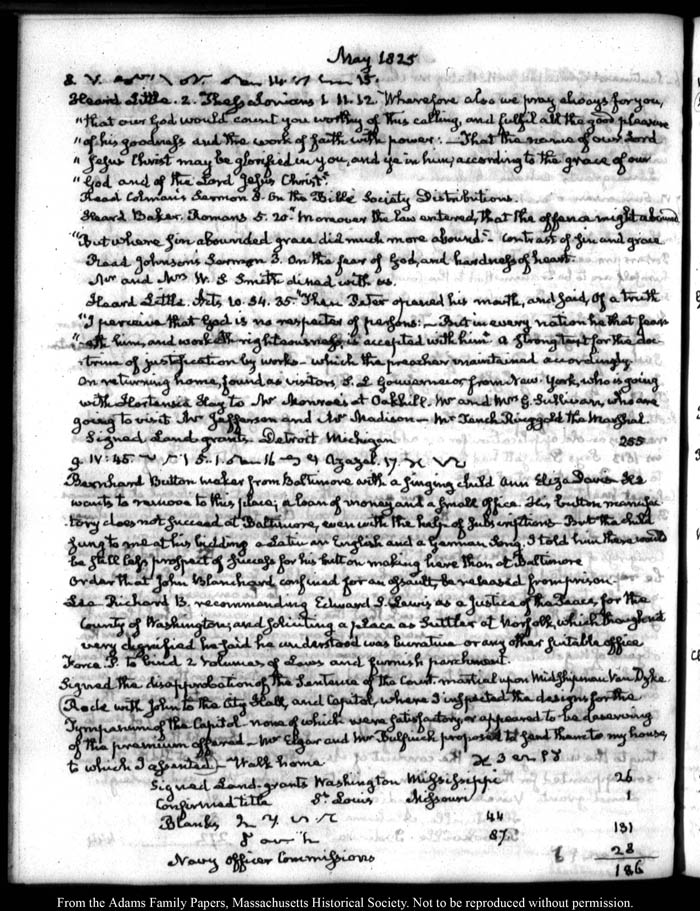 May 1825
8. V. 15.
Heard Little. 2. Thessalonians 1. 11. 12. Wherefore also we pray always for you,
"that our God would count you worthy of this calling, and fulfil all the good pleasure
"of his goodness and the work of faith with power: — That the name of our Lord
"Jesus Christ may be glorified in you, and ye in him, according to the grace of our
"God and of the Lord Jesus Christ."
Read Colman's Sermon 8. On the Bible Society Distributions.
Heard Baker. Romans 5. 20. "Moreover the law entered, that the offence might abound
"But where sin abounded grace did much more abound" — Contrast of sin and grace
Read Johnson's Sermon 3. On the fear of God, and hardness of heart.
Mr and Mrs W. S. Smith dined with us.
Heard Little. Acts, 10. 34. 35. "Then Peter opened his mouth, and said, Of a truth
"I perceive that God is no respecter of persons: — But in every nation he that fear-
"-eth him, and worketh righteousness, is accepted with him" a strong text for the doc-
trine of justification by works — which the preacher maintained accordingly
On returning home, found as visitors, S. L Gouverneur from New-York, who is going
with Hortensia Hay to Mr Monroe's at Oakhill. Mr and Mrs G. Sullivan, who are
going to visit Mr Jefferson and Mr Madison — Mr Tench Ringgold the Marshal.
Signed Land grants — Detroit Michigan 255
9. IV: 45 16 Azazel. 17.
Bernhard Button maker from Baltimore with a singing child Ann Eliza Davis — He
wants to remove to this place; a loan of money and a small Office. His button manufac
tory does not succeed at Baltimore, even with the help of subscriptions — But the child
sung to me at his bidding a Latin an English and a German Song. I told him there would
be still less prospect of success for his button making here than at Baltimore
Order that John Blanchard confined for an assault, be released from prison —
Lee Richard B. recommending Edward S. Lewis as a Justice of the Peace, for the
County of Washington; and soliciting a place as Suttler at Norfolk, which though not
very dignified he said he understood was lucrative or any other suitable office
Force P. to bind 2 volumes of Laws and furnish parchment.
Signed the disapprobation of the Sentence of the Court martial upon Midshipman Van Dyke
Rode with John to the City Hall, and Capitol, where I inspected the designs for the
Tympanum of the Capitol — none of which were satisfactory, or appeared to be deserving
of the premium offered — Mr Elgar and Mr Bulfinch proposed to send them to my house,
to which I assented — Walk home
Signed Land-grants Washington Mississippi 26
Confirmed title St Louis Missouri 1
Blanks 44
87. 131
Navy Officer Commissions 28
186
From the Adams Family Papers, Massachusetts Historical Society. Not to be reproduced without permission.